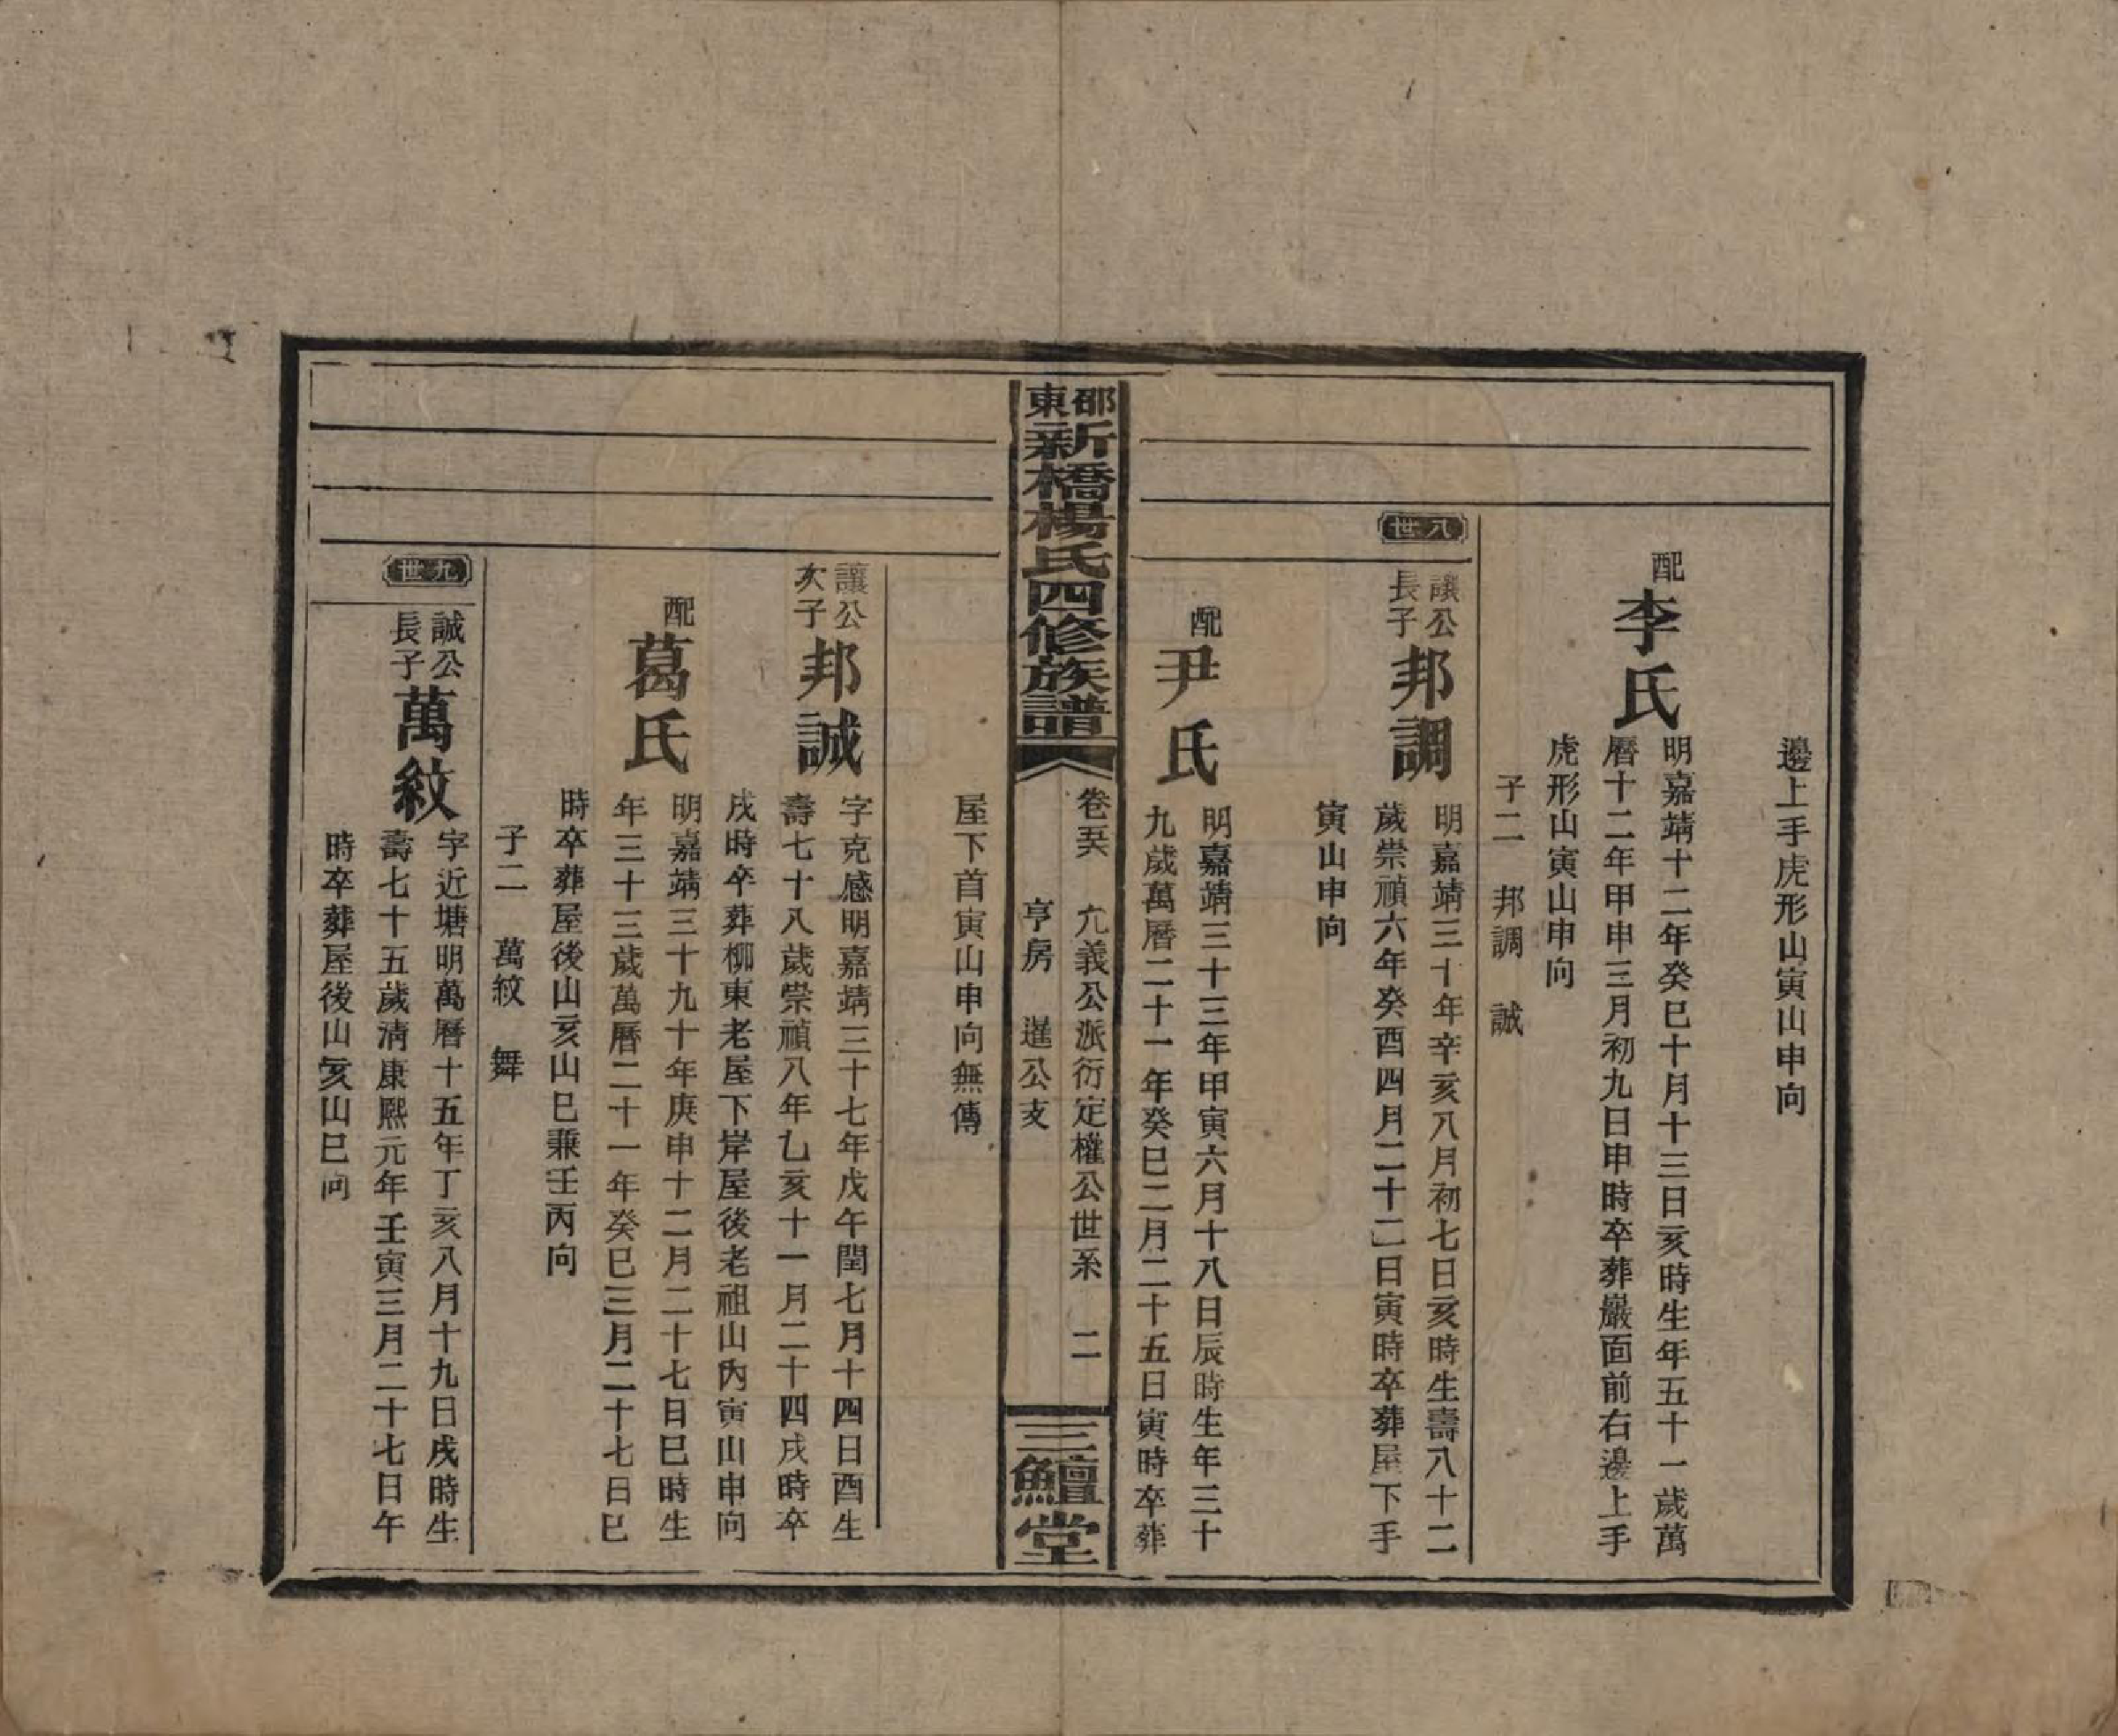 邊上手虎形山寅山申向
配
李氏
明嘉靖十二年癸巳十月十三日亥時生年五十一歲萬
曆十二年甲申三月初九日申時卒葬巖面前右邊上手
虎形山寅山申向
子二 邦調 誠
八世
讓公
長子
邦調
明嘉靖三十年辛亥八月初七日亥時生壽八十二
歲崇禎六年癸酉四月二十二日寅時卒葬屋下手
寅山申向
配
尹氏
明嘉靖三十三年甲寅六月十八日辰時生年三十
九歲萬曆二十一年癸巳二月二十五日寅時卒葬
邵東
新橋楊氏四修族譜
卷五 九義公派衍定權公世系 二
亨房 暹公支
三鱣堂
屋下首寅山申向無傳
讓公
次子
邦誠
字克感明嘉靖三十七年戊午閏七月十四日酉生
壽七十八歲崇禎八年乙亥十一月二十四戌時卒
戌時卒葬柳東老屋下岸屋後老祖山內寅山申向
配
葛氏
明嘉靖三十九十年庚申十二月二十七日巳時生
年三十三歲萬曆二十一年癸巳三月二十七日巳
時卒葬屋後山亥山巳兼壬丙向
子二 萬紋 舞
九世
誠公
長子
萬紋
字近塘明萬曆十五年丁亥八月十九日戌時生
壽七十五歲清康熙元年壬寅三月二十七日午
時卒葬屋後山亥山巳向